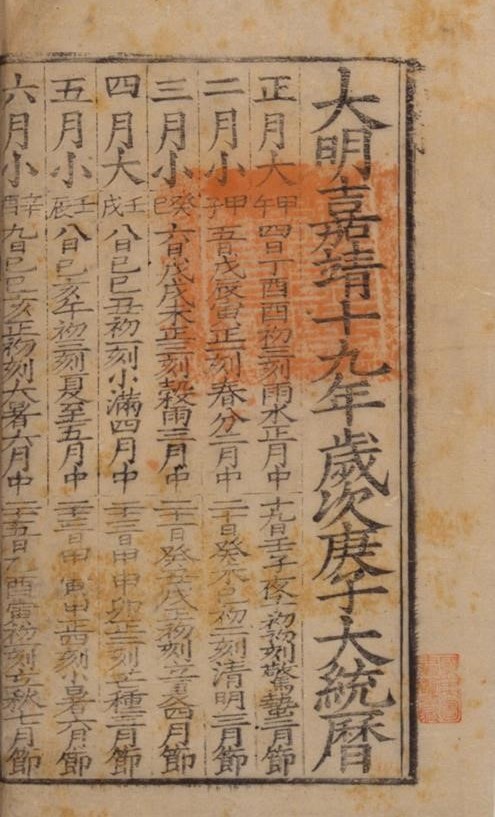 大明嘉靖十九年歲次庚子大統曆
正月大 甲午 四日丁酉酉初三刻雨水正月中 十九日壬子夜子初初刻驚蟄二月節
二月小 甲子 五日戊辰寅正一刻春分二月中 二十日癸未巳初二刻清明三月節
三月小 癸巳 六日戊戌未正三刻穀雨三月中 二十一日癸丑戌正初刻立夏四月節
四月大 壬戌 八日己巳丑初一刻小滿四月中 二十三日甲申卯正二刻芒種五月節
五月小 壬辰 八日己亥午初三刻夏至五月中 二十三日甲寅申正 刻小暑六月節
六月小 辛酉 九日己巳亥正初刻大暑六月中 二十五日乙酉寅初 刻立秋七月節